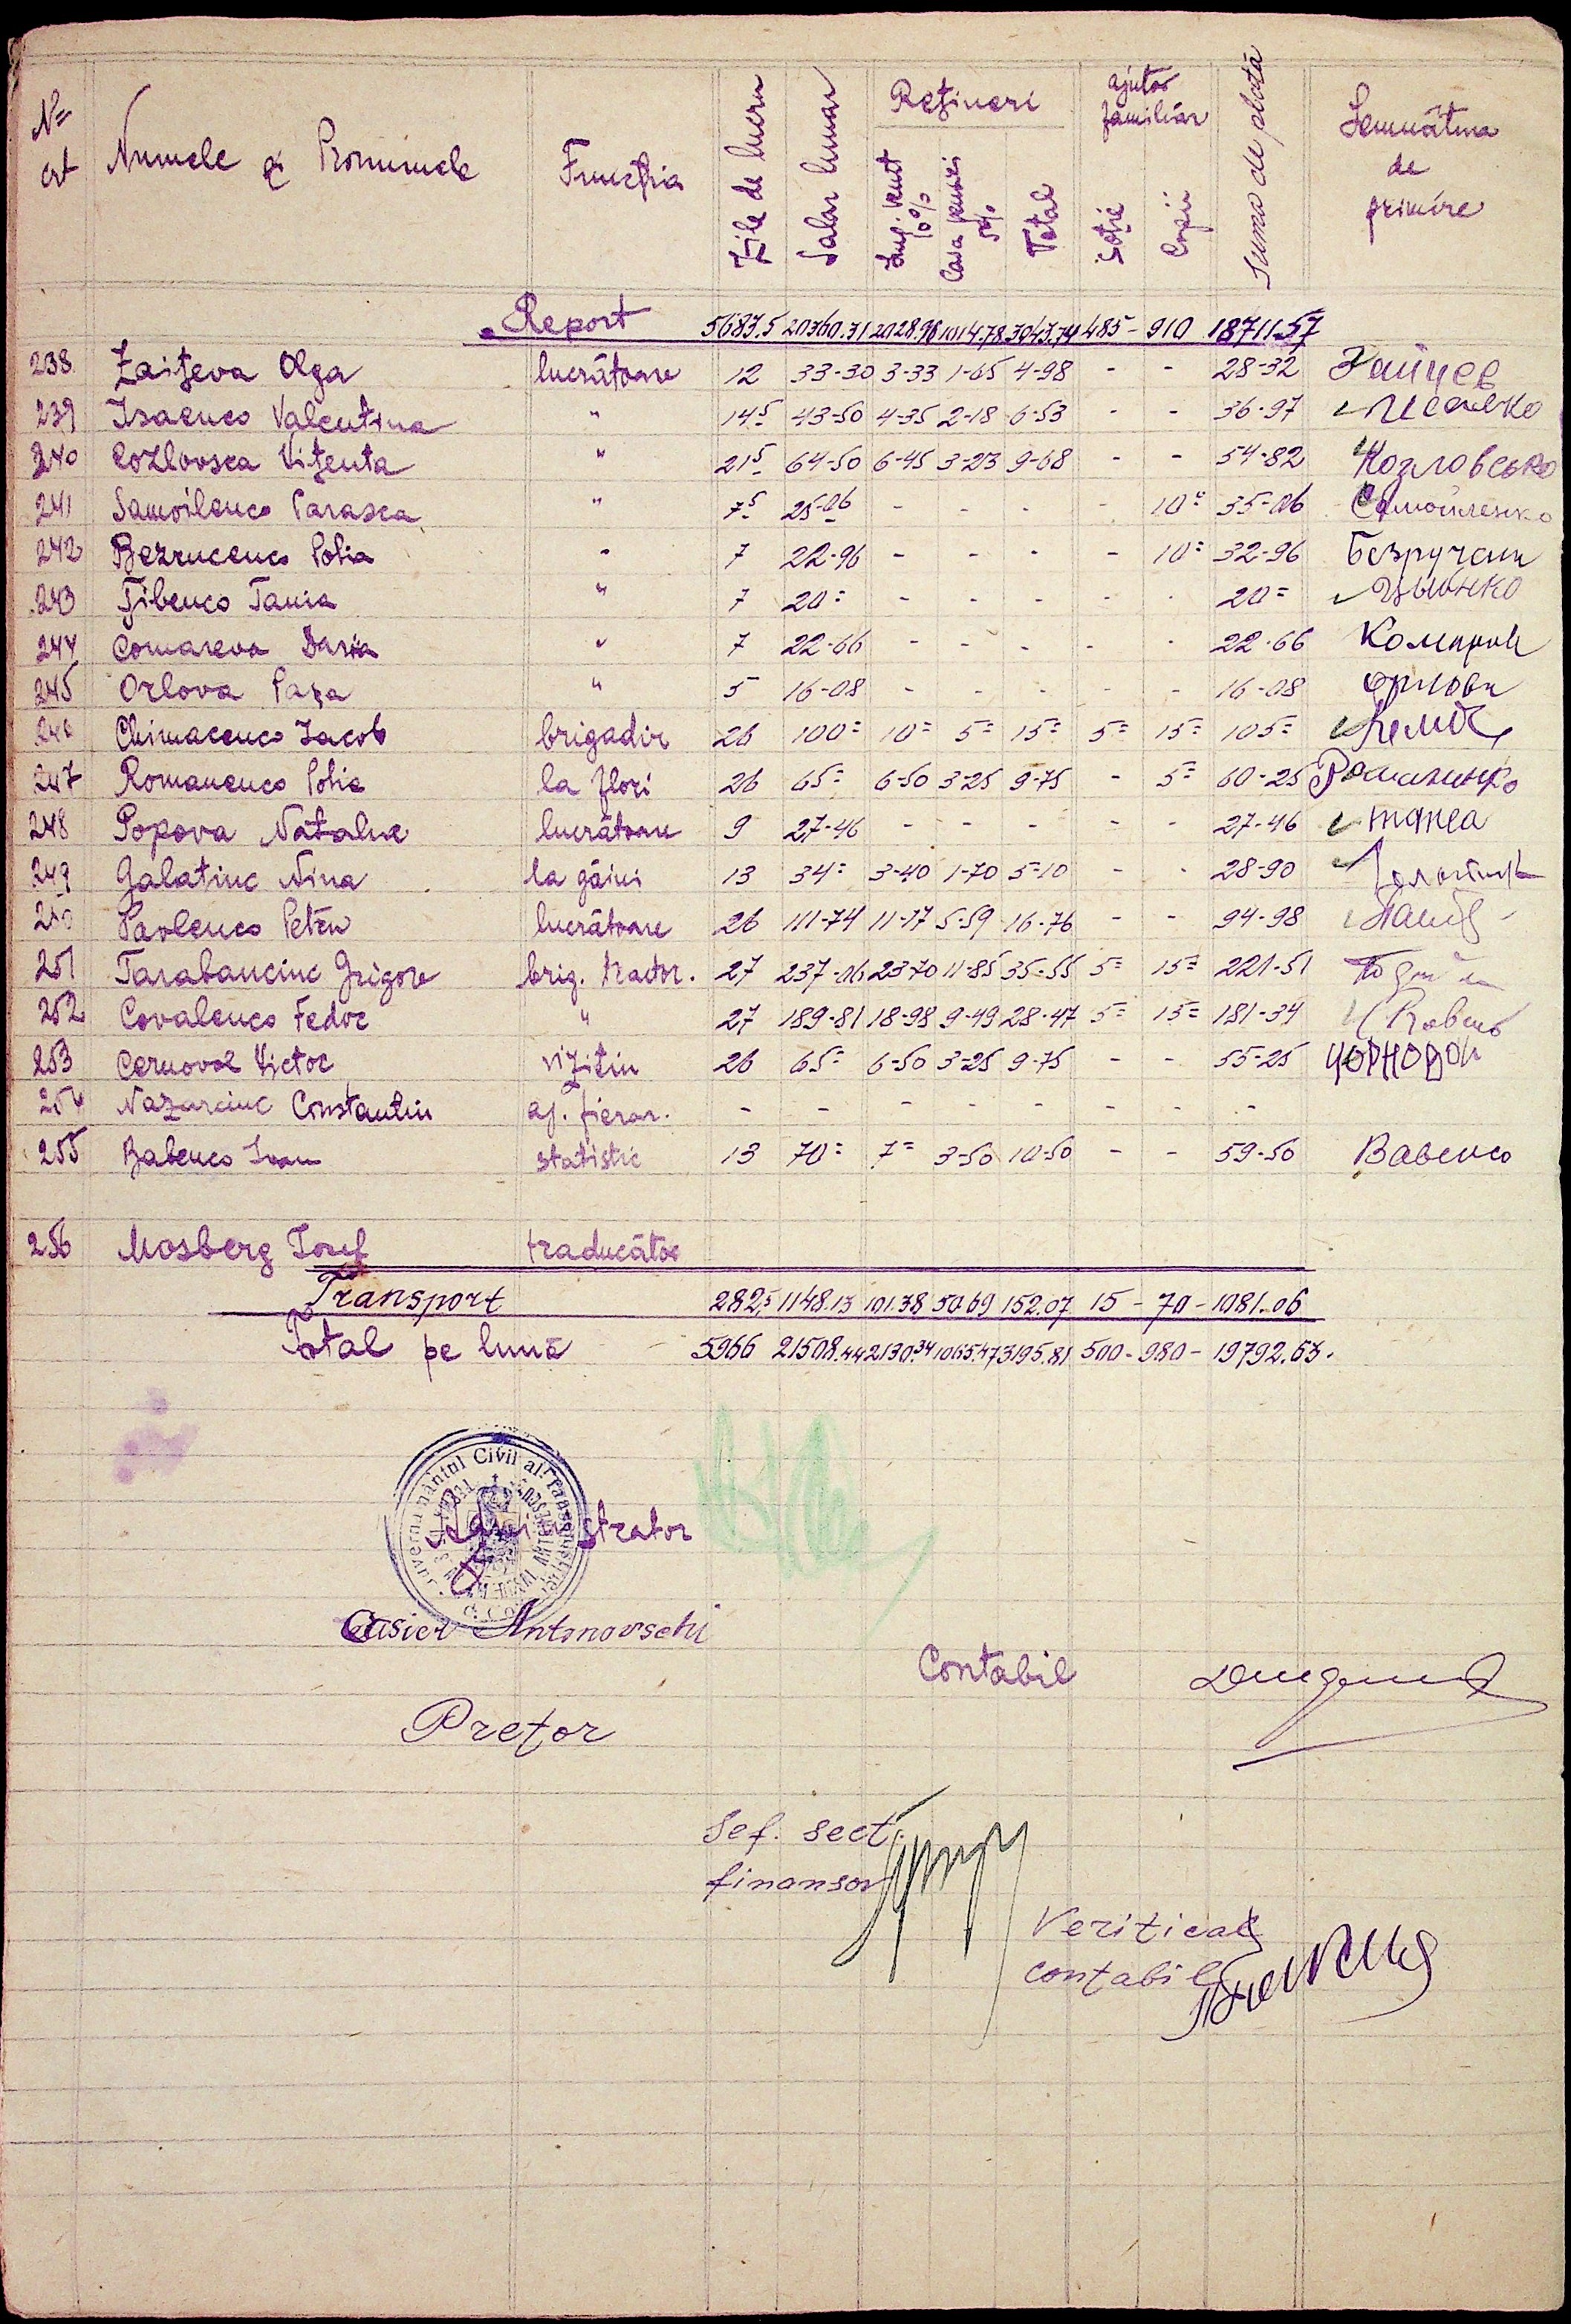 № crt Numele și Pronumele Funcția Zile de lucru Salar lunar Rețineri Imp. venit 10% Casa pensiei 5% Total ajutor familiar soție copii suma de plată Semnătura de primire
Report 5683,5 20360.31 2028.96 1014.78 3043.74 485- 910 18711.57
238 Zaițeva Olga lucrătoare 12 33-30 3-33 1-65 4-98 - - 28-32 Зайцев
239 Isaenco Valentina " 14,5 43-50 4-35 2-18 6-53 - - 36-97
240 Cozlovsca Vitenta " 21,5 64-50 6-45 3-23 9-68 - - 54-82 Козловсько
241 Samoilenco Parasca " 7,5 25-06 - - - - 10= 35-06 Самойленко
242 Bezrucenco Sofia " 7 22-96 - - - - 10= 32-96 Безручени
243 Țibenco Tania " 7 20= - - - - - 20=
244 Comareva Daria " 7 22-66 - - - - 22-66 Комаров
245 Orlova Pașa " 5 16-08 - - - - - 16-08 Орлова
246 Chimacenco Iacob brigadir 26 100= 10= 5= 15= 5= 15= 105=
247 Romanenco Sofia la flori 26 65= 6-50 3-25 9-75 - 5= 60-25 Романенко
248 Popova Natalia lucrătoare 9 27-46 - - - - - 27-46
249 Galatiuc Nina la găini 13 34= 3-40 1-70 5-10 - - 28-90
250 Pavlenco Petru lucrătoare 26 111-74 11-17 5-59 16-76 - - 94-98
251 Tarabanciuc Grigore brig. tractor. 27 237-06 23-70 11-85 35-55 5= 15= 221-51
252 Covalenco Fedor " 27 189-81 18-98 9-49 28-47 5= 15= 181-34
253 Cernovol Victor vizitiu 26 65= 6-50 3-25 9-75 - - 55-25 ЧОРНОВОЛ
254 Nazarciuc Constantin aj. fierar. - - - - - - - -
255 Babenco Ivan statistic 13 70= 7= 3-50 10-50 - - 59-50 Babenco
256 Mosberg Iosef traducător
Transport 282,5 1148.13 101.38 50.69 152.07 15- 70- 1081.06
Total pe lună 5966 21508.44 2130.34 1065.47 3195.81 500- 980- 19792.63.
Guvernământul Civil al Transnistriei
Administrator
Casier Antonovschi
Contabil
Pretor
Șef. sect.
finansov
Verificat
contabil